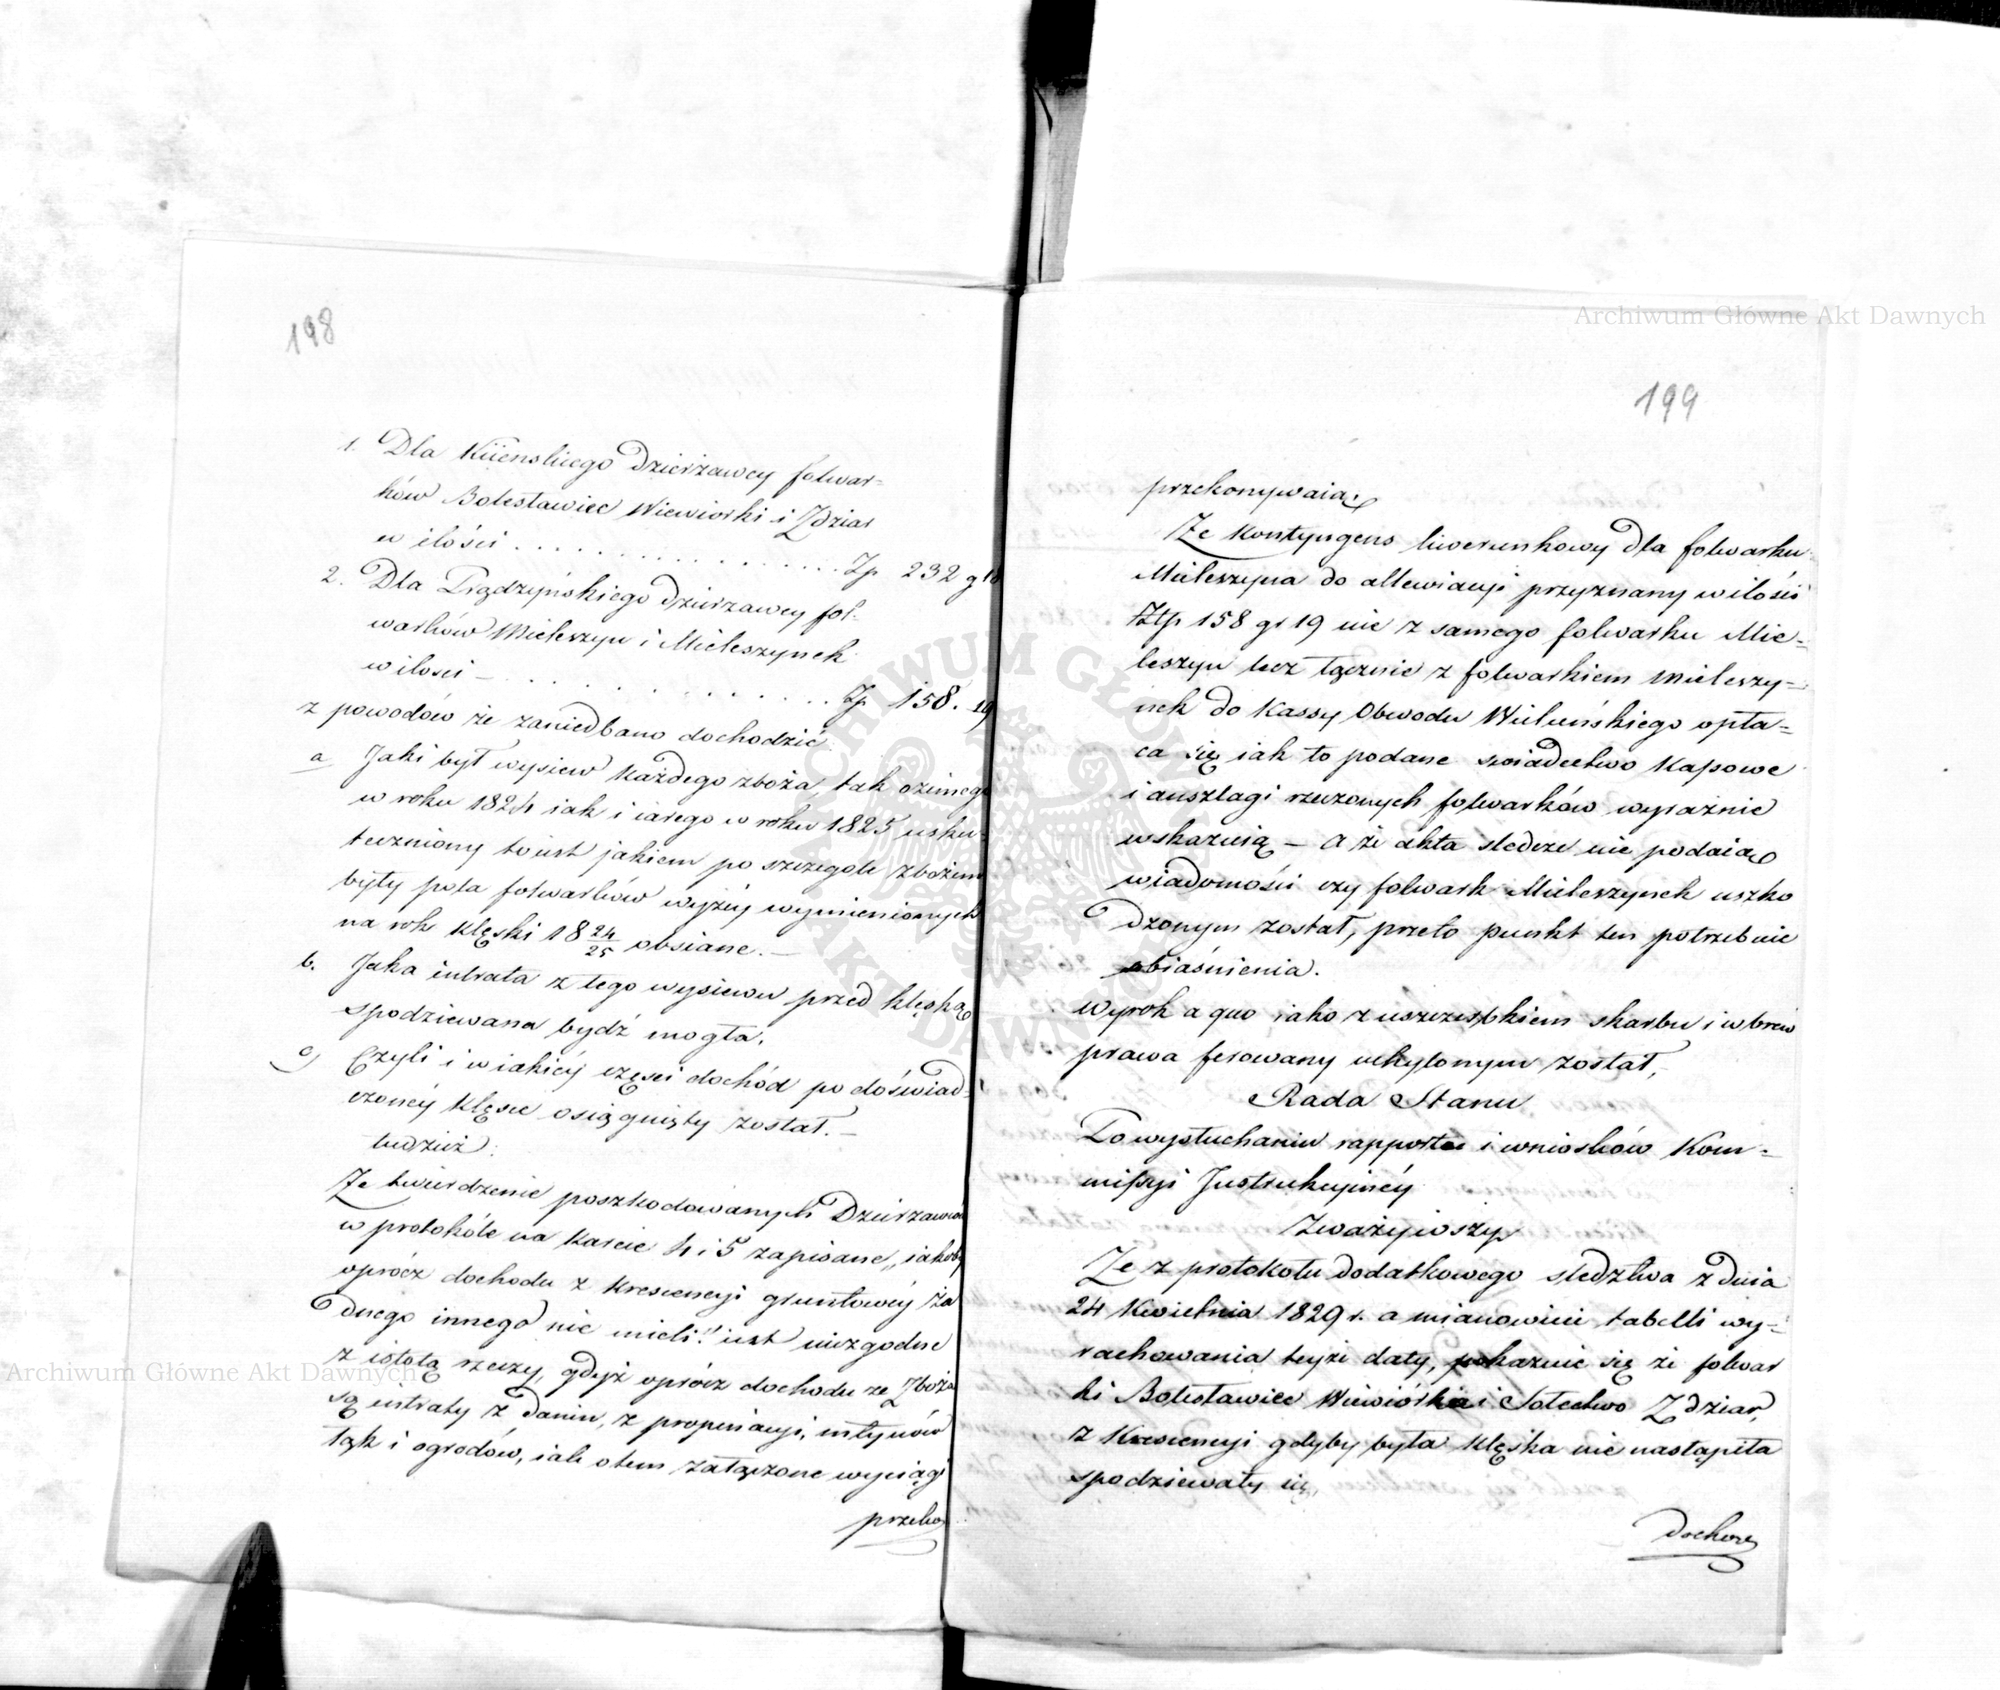 198
1. Dla Kiienskiego Dzierżawcy folwar=
ków Bolesławiec Wiewiorki i Zdziar
w ilości . . . . . . . . . . . . . . Zp 232 g 10
2. Dla Prądzyńskiego Dzierzawcy fol-
warków Mieleszyn i Mieleszynek
w ilosci — . . . . . . . . . . . . . Zp 158. 19
z powodów że zaniedbano dochodzić
a Jaki był wysiew każdego zboża, tak ozimego
w roku 1824 iak i iarego w roku 1825 usku-
teczniony to iest jakiem po szczegole zbożem
były pola folwarków wyżéy wymienionych
na rok klęski 18 24/25 obsiane. —
b. Jaka intrata z tego wysiewu przed klęską
spodziewana bydź mogła.
c) Czyli i w iakiéy części dochód po doświad-
czonéy klęsce osiągnięty został. —
tudzież:
Ze twierdzenie poszkodowanych Dzierzawców
w protokóle na karcie 4 i 5 zapisane, „iakoby
oprócz dochodu z krescencyi gruntowéy ża
dnego innego nie mieli" iest niezgodne
z istotą rzeczy, gdyż oprócz dochodu ze Zboża
są intraty z Danin, z propinacyi, młynów
łąk i ogrodów, iak o tem załączone wyciągi
przeko
199
przekonywaią.
Ze kontyngens liwerunkowy dla folwarku
Mieleszyna do allewiacyi przyznany w ilości
Złp 158 gr 19 nie z samego folwarku Mie-
leszyn lecz łącznie z folwarkiem Mieleszy-
nek do Kassy Obwodu Wieluńskiego opła-
ca się iak to podane swiadectwo kasowe
i anszlagi rzeczonych folwarków wyraźnie
wskazuią — a że akta sledcze nie podaią
wiadomości czy folwark Mieleszynek uszko
dzonym został, przeto punkt ten potrzebuie
obiaśnienia.
wyrok a quo iako z uszczerbkiem skarbu i wbrew
prawa ferowany uchylonym został,
Rada Stanu
Po wysłuchaniu rapportu i wniosków Kom-
missyi Instrukcyinéy
Zważywszy
Ze z protokołu dodatkowego sledztwa z dnia
24 Kwietnia 1829 r. a mianowicie tabelli wy-
rachowania teyże daty, pokazuie się że folwar
ki Bolesławiec Wiewiórka i Sołectwo Zdziar,
z krescencyi gdyby była klęska nie nastąpiła
spodziewały się,
dochozu
Archiwum Główne Akt Dawnych
Archiwum Główne Akt Dawnych
ARCHIWUM GŁÓWNE AKT DAWNYCH